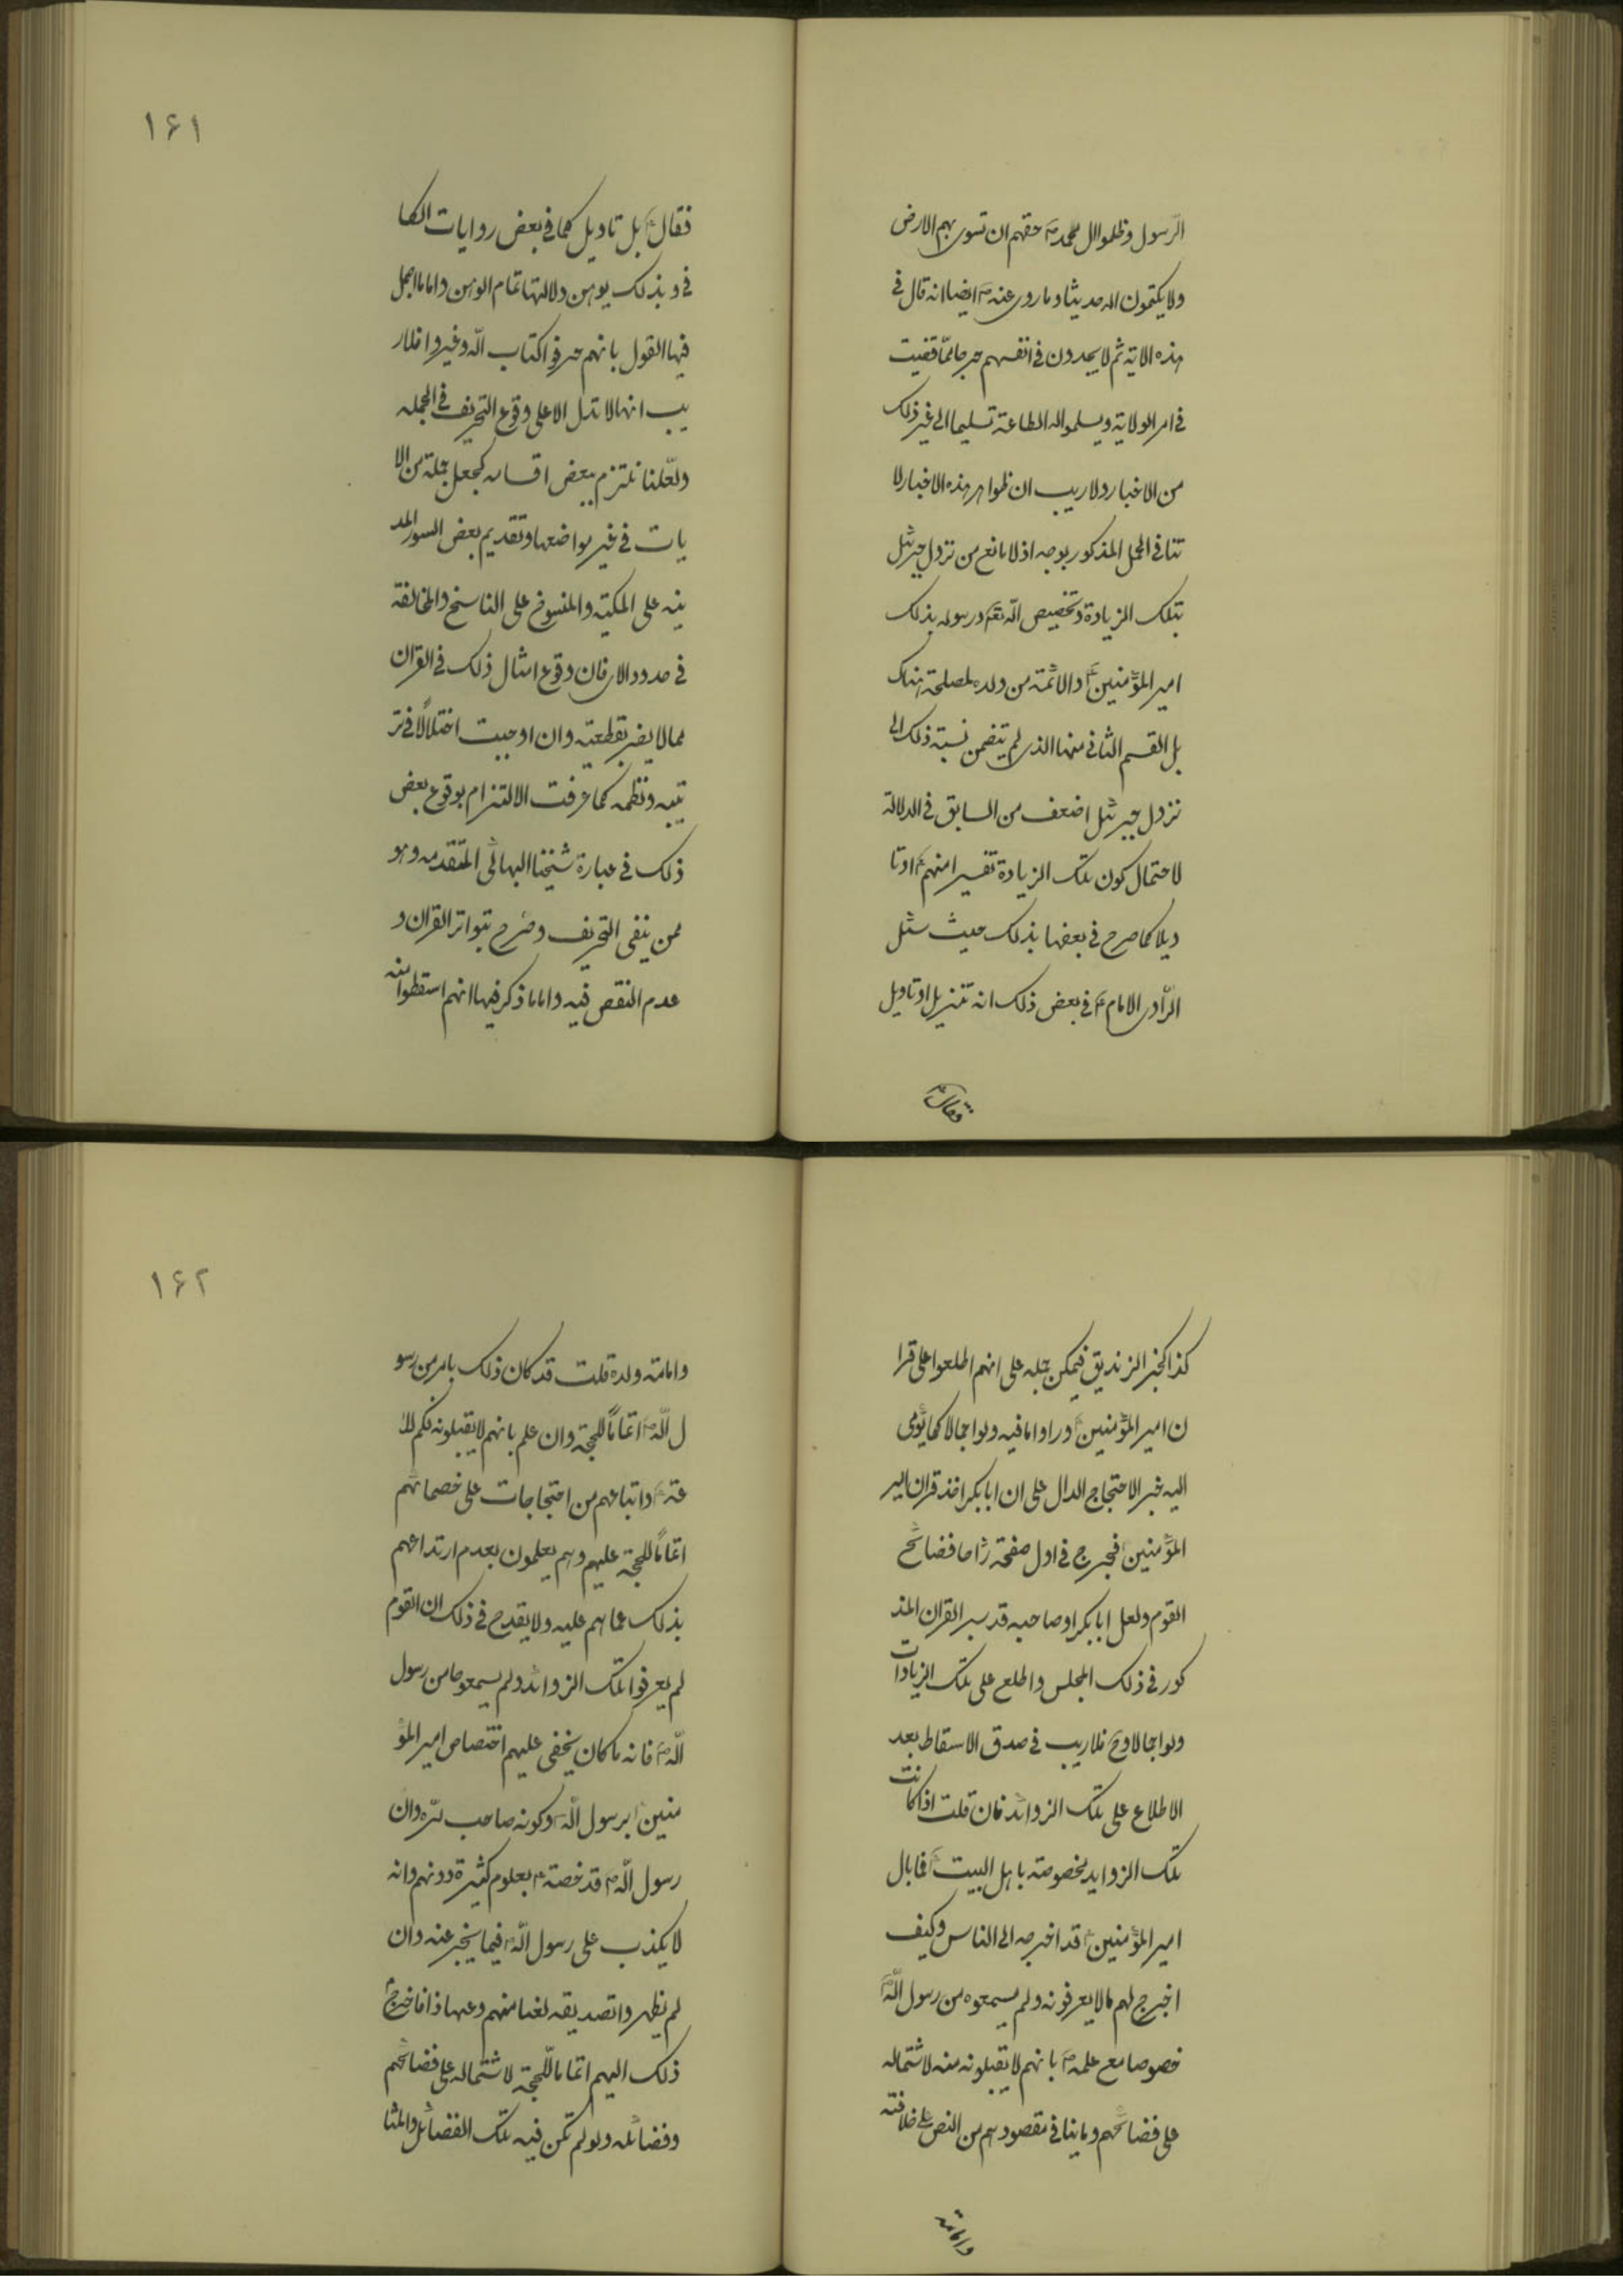 الرّسول وظلموا ال محمدص حقهم ان تسوى بهم الارض
ولا يكتمون الله حديثا وما روى عنهص ايضا انه قال فى
هذه الاية ثم لا يجدون فى انفسهم حرجا ممّا قضيت
فى امر الولاية ويسلموا لله الطاعة تسليما الى غير ذلك
من الاخبار ولا ريب ان ظواهر هذه الاخبار لا
تنافى المحمل المذكور بوجه اذ لا مانع من نزول جبرئيل
بتلك الزيادة وتخصيص الله تعم ورسوله بذلك
امير المؤمنينع والائمة من ولده لمصلحة هناك
بل القسم الثانى منها الذى لم يتضمن نسبة ذلك الى
نزول جبرئيل اضعف من السابق فى الدلالة
لاحتمال كون تلك الزيادة تفسيرا منهمع اوتا
ويلا كما صرح فى بعضها بذلك حيث سئل
الرّاوى الامامع فى بعض ذلك انه تنزيل او تاويل
فقالع
١۶١
فقالع بل تاويل كما فى بعض روايات الكا
فى وبذلك يوهن دلالتها تمام الوهن واما ما اجمل
فيها القول بانهم حرفوا كتاب الله وغيروا فلار
يب انها لا تدل الا على وقوع التحريف فى الجمله
ولعّلنا نلتزم ببعض اقسامه كجعل جملة من الا
يات فى غير مواضعها وتقديم بعض السور المد
ينه على المكية والمنسوخ على الناسخ والمخالفة
فى حدود الاى فان وقوع امثال ذلك فى القران
مما لا يضر بقطعيته وان اوجبت اختلالًا فى تر
تيبه ونظمه كما عرفت الالتزام بوقوع بعض
ذلك فى عبارة شيخنا البهائى المتقدمه وهو
ممن ينفى التحريف وصرح بتواتر القران و
عدم النقص فيه واما ما ذكر فيها انهم اسقطوا منه
كذا كخبر الزنديق فيمكن حمله على انهم اطلعوا على قرا
ن امير المؤمنينع وراوا ما فيه ولو اجمالا كما يؤمى
اليه خبر الاحتجاج الدال على ان ابابكر اخذ قران امير
المؤمنينع فخرج فى اول صفحة رٰاها فضائح
القوم ولعل ابابكر او صاحبه قد سبر القران المذ
كور فى ذلك المجلس واطلع على تلك الزيادات
ولو اجمالا وح فلا ريب فى صدق الاسقاط بعد
الاطلاع على تلك الزوائد فان قلت اذا كانت
تلك الزوايد مخصوصة باهل البيتع فما بال
امير المؤمنينع قد اخرجه الى الناس وكيف
اخرج لهم ما لا يعرفونه ولم يسمعوه من رسول اللهص
خصوصا مع علمهع بانهم لا يقبلونه منه لاشتماله
على فضائحهم وما ينافى مقصودهم من النص على خلافته
وامامة
١۶٢
وامامة ولده قلت قد كان ذلك بامر من رسو
ل اللهص اتمامًا للحجة وان علم بانهم لا يقبلونه فكم للا
ئمةع واتباعهم من احتجاجات على خصمائهم
اتمامًا للحجة عليهم وهم يعلمون بعدم ارتداعهم
بذلك عما هم عليه ولا يقدح فى ذلك ان القوم
لم يعرفوا تلك الزوائد ولم يسمعوها من رسول
اللهص فانه ما كان يخفى عليهم اختصاص امير المؤ
منينع برسول اللهص وكونه صاحب سرّه وان
رسول اللهص قد خصهع بعلوم كثيرة دونهم وانه
لا يكذب على رسول اللهص فيما يخبر عنه وان
لم يظهروا تصديقه لعنا منهم وعهادا فاخرج
ذلك اليهم اتماما للحجة لاشتماله على فضائحهم
وفضائله ولو لم تكن فيه تلك الفضائل والمثا